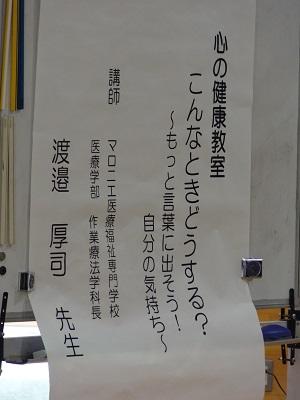 心の健康教室
こんなときどうする?
～もっと言葉に出そう!
自分の気持ち～
講師
マロニエ医療福祉専門学校
医療学部 作業療法学科長
渡邉 厚司 先生